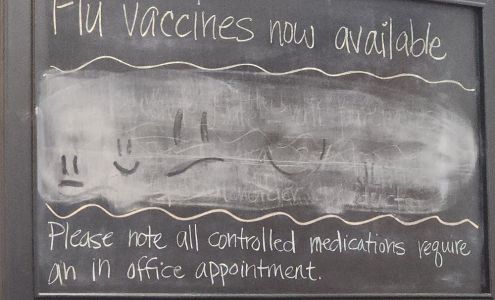 Flu vaccines now available
Please note all controlled medications require
an in office appointment.